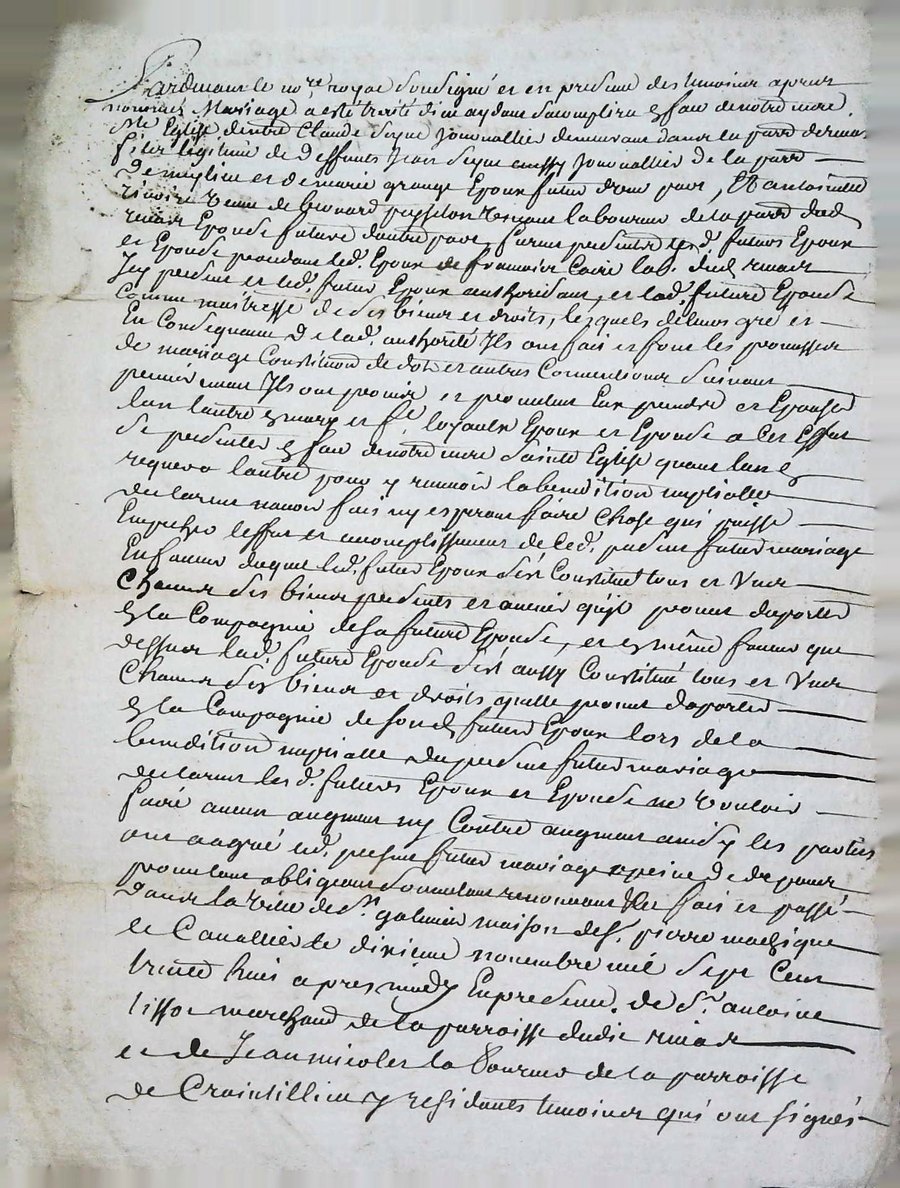 Pardevant le no.re royal soussigné et en presence des temoins apres
nommés Mariage a esté traité dieu aydant saccomplira en face de notre mere
Ste Eglise d'entre Claude journallier demeurant dans la parr.e de
fils légitime de deffunts Jean aussy journallier de la parr.e
de et de marie grange Epoux futur d'une part, Et antoinette
veuve de benoird vivant laboureur de la parr.e dud.
Epouse future d'autre part, futurs Epoux
et Epouse led. Epoux de francois lab. dud.
Icy present et led. futur Epoux authorisant, et lad. future Epouse
Comme maitresse de ses biens et droits, lesquels de leurs gré et
En Consequence de lad. authorité Ils ont fait et font les promesses
de mariage Constitution de dot et autres Conventions suivant
premierement Ils ont promis et promettent Eux prendre et Epouser
lun lautre en mary et fe. loyaulx Epoux et Epouse a Cet Effet
se presenter en face de notre mere Sainte Eglise quant lun en
requera lautre pour y recevoir la benediction nuptialle
declarant navoir fait ny esperant faire Chose qui puisse
Empecher leffet et accomplissement de Ced. present futur mariage
En faveur duquel led. futur Epoux sest Constitué tous et Uns
Chacuns ses biens presents et avenir quil promet daporter
en la Compagnie de sa future Epouse, et en même faveur que
dessus lad. future Epouse sest aussy Constitué tous et Uns
Chacuns ses biens et droits quelle promet daporter
en la Compagnie de sond. futur Epoux lors de la
benediction nuptialle du present futur mariage
declarant lesd. futurs Epoux et Epouse ne vouloir
faire aucun augment ny Contre augment ainsy les parties
ont aagréé led. present futur mariage a peine de
promettant obligeant soumettant renonceant &c fait et passé
dans la ville de St galmier maison de s.r pierre
le Cavallier le dixieme novembre mil sept Cent
trente huit apres midy En presence de Sr antoine
tissot marchand de la parroisse dudit
et de Jean nicolas la de la parroisse
de Craintillieu y residants temoins qui ont signés